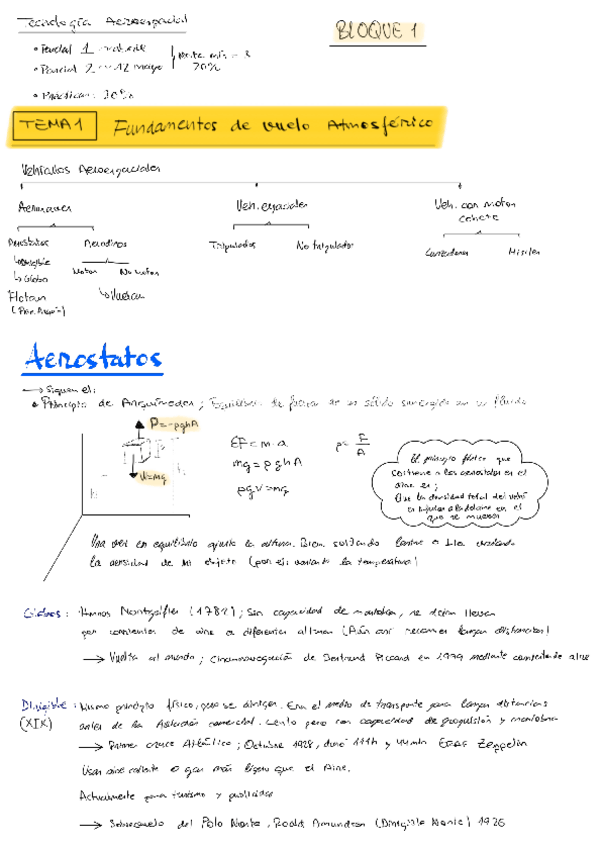 Tecnología Aeroespacial
BLOQUE 1
• Parcial 1
• Parcial 2 12 mayo
70%
• Prácticas: 30%
TEMA 1 Fundamentos de vuelo Atmosférico
Vehículos Aeroespaciales
Aeronaves Veh. espaciales Veh. con motor cohete
Aerostatos Aerodinos Tripulados No tripulados Misiles
↳ Dirigible Motor No motor
↳ Globo
Flotan ↳ Vuelan
Aerostatos
→ Siguen el:
• Principio de Arquímedes; Equilibrio de fuerzas de un sólido sumergido en un fluido
P=-ρghA
W=mg
h
ΣF=m·a
mg=ρghA
ρgV=mg
P= F/A
El principio físico que
sostiene a los aerostatos en el
aire es;
Que la densidad total del vehí
es inferior a la del aire en el
que se mueven
Una vez en equilibrio ajusta la altura. Bien soltando lastre o
la densidad de mi objeto (por ej: variando la temperatura)
Globos: Hermanos Montgolfier (178?); Sin capacidad de maniobra, se dejan llevar
por corrientes de aire a diferentes alturas (Aún así recorren largas distancias)
→ Vuelta al mundo; Circunnavegación de Bertrand Piccard en 1999 mediante corrientes de aire
Dirigible: Mismo principio físico, pero se dirigen. Era el medio de transporte para largas distancias
(XIX) antes de la Aviación comercial. Lento pero con capacidad de propulsión y maniobra
→ Primer cruce Atlántico; Octubre 1928, duró 111h y 44min Graf Zeppelin
Usan aire caliente o gas más ligero que el Aire.
Actualmente para turismo y publicidad
→ Sobrevuelo del Polo Norte, Roald Amundsen (Dirigible Norge) 1926